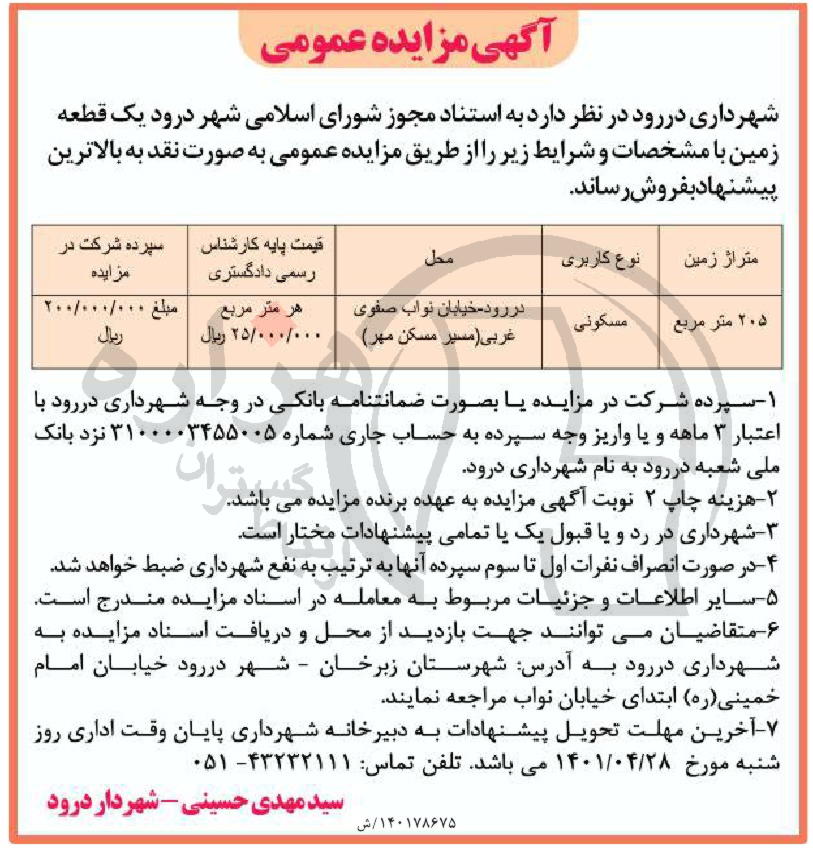 آگهی مزایده عمومی
شهرداری دررود در نظر دارد به استناد مجوز شورای اسلامی شهر درود یک قطعه
زمین با مشخصات و شرایط زیر را از طریق مزایده عمومی به صورت نقد به بالاترین
پیشنهاد بفروش رساند.
متراژ زمین نوع کاربری محل قیمت پایه کارشناس رسمی دادگستری سپرده شرکت در مزایده
۲۰۵ متر مربع مسکونی دررود-خیابان نواب صفوی غربی(مسیر مسکن مهر) هر متر مربع ۲۵/۰۰۰/۰۰۰ ریال مبلغ ۲۰۰/۰۰۰/۰۰۰ ریال
۱-سپرده شرکت در مزایده یا بصورت ضمانتنامه بانکی در وجه شهرداری دررود با
اعتبار ۳ ماهه و یا واریز وجه سپرده به حساب جاری شماره ۳۱۰۰۰۰۳۴۵۵۰۰۵ نزد بانک
ملی شعبه دررود به نام شهرداری درود.
۲-هزینه چاپ ۲ نوبت آگهی مزایده به عهده برنده مزایده می باشد.
۳-شهرداری در رد و یا قبول یک یا تمامی پیشنهادات مختار است.
۴-در صورت انصراف نفرات اول تا سوم سپرده آنها به ترتیب به نفع شهرداری ضبط خواهد شد.
۵-سایر اطلاعات و جزئیات مربوط به معامله در اسناد مزایده مندرج است.
۶-متقاضیان می توانند جهت بازدید از محل و دریافت اسناد مزایده به
شهرداری دررود به آدرس: شهرستان زبرخان - شهر دررود خیابان امام
خمینی(ره) ابتدای خیابان نواب مراجعه نمایند.
۷-آخرین مهلت تحویل پیشنهادات به دبیرخانه شهرداری پایان وقت اداری روز
شنبه مورخ ۱۴۰۱/۰۴/۲۸ می باشد. تلفن تماس: ۴۳۲۳۲۱۱۱- ۰۵۱
سید مهدی حسینی – شهردار درود
۱۴۰۱۷۸۶۷۵/ش
هزاره
گستران
ارتباط